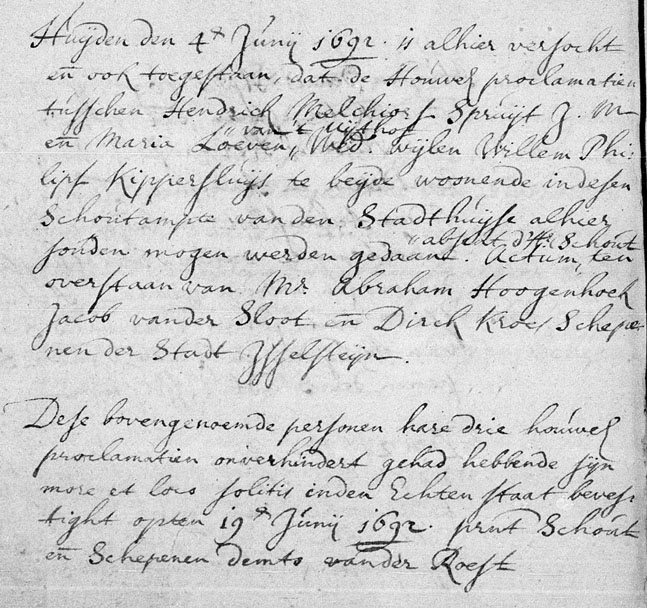 Huijden den 4e Junij 1692. is alhier versocht
en ook toegestaan, dat de Houwel proclamatien
tusschen Hendrick Melchiorss Spruijt J. M
"van 't Uijthof
en Maria Loeven " Wed. wijlen Willem Phi-
lips Kippersluijs te beijde woonende in desen
Schoutampte van den Stadthuijse alhier
"absent d'Hr. Schout
souden mogen werden gedaan. Actum, ten
overstaan van Mr. Abraham Hoogenhoek
Jacob vander Sloot en Dirck Kroes Schepe-
nen der Stadt IJsselsteijn.
Dese bovengenoemde personen hare drie houwel
proclamatien onverhindert gehad hebbende sijn
more et loco solitis inden Echten staat beves-
tight opten 19e Junij 1692. prnt Schout
en Schepenen demto vander Roest